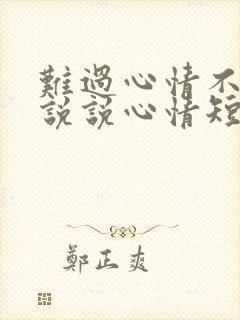 難過心情不
說說心情短
鄭正爽